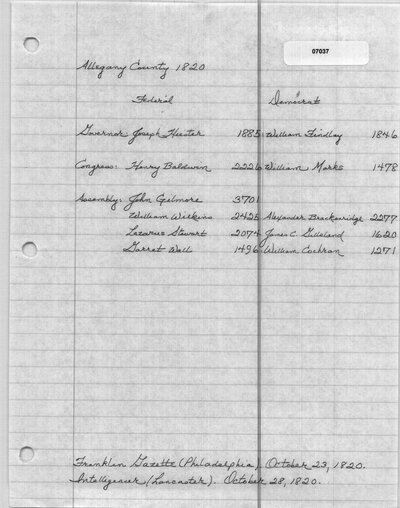 07037
Allegany County 1820
Federal Democrat
Governor: Joseph Hiester 1885 William Findlay 1846
Congress: Henry Baldwin 2226 William Marks 1478
Assembly: John Gilmore 3701
William Wilkins 2425 Alexander Brackenridge 2277
Lazarus Stewart 2074 James C. Gilleland 1620
Garret Wall 1496 William Cochran 1271
Franklin Gazette (Philadelphia). October 23, 1820.
Intelligencer (Lancaster). October 28, 1820.